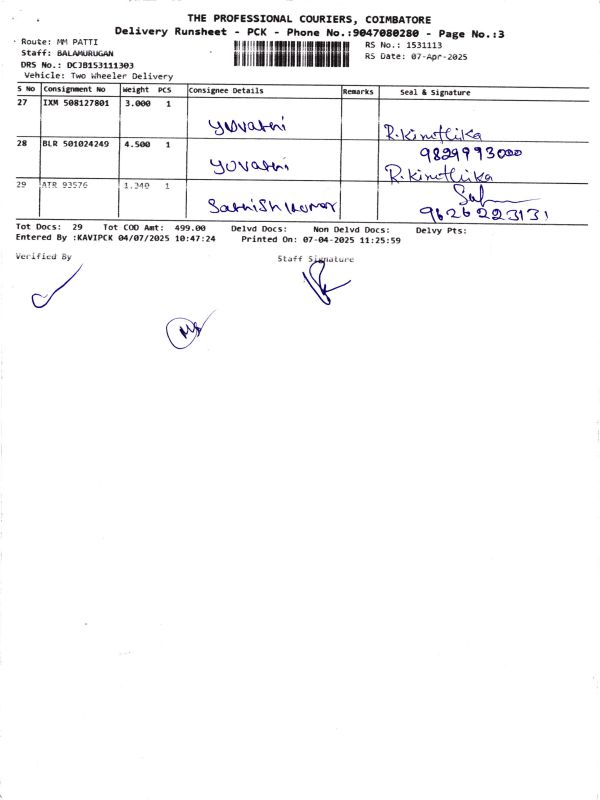 THE PROFESSIONAL COURIERS, COIMBATORE
Delivery Runsheet - PCK - Phone No.:9047080280 - Page No.:3
Route: MM PATTI
RS No.: 1531113
Staff: BALAMURUGAN
RS Date: 07-Apr-2025
DRS No.: DCJB153111303
Vehicle: Two Wheeler Delivery
S No Consignment No Weight PCS Consignee Details Remarks Seal & Signature
27 IXM 508127801 3.000 1
yuvathi R.Kiruthika
28 BLR 501024249 4.500 1 9829993000
yuvathi R.Kiruthika
29 ATR 93576 1.340 1
Sathishkumar 9626223131
Tot Docs: 29 Tot COD Amt: 499.00 Delvd Docs: Non Delvd Docs: Delvy Pts:
Entered By :KAVIPCK 04/07/2025 10:47:24 Printed On: 07-04-2025 11:25:59
Verified By Staff Signature